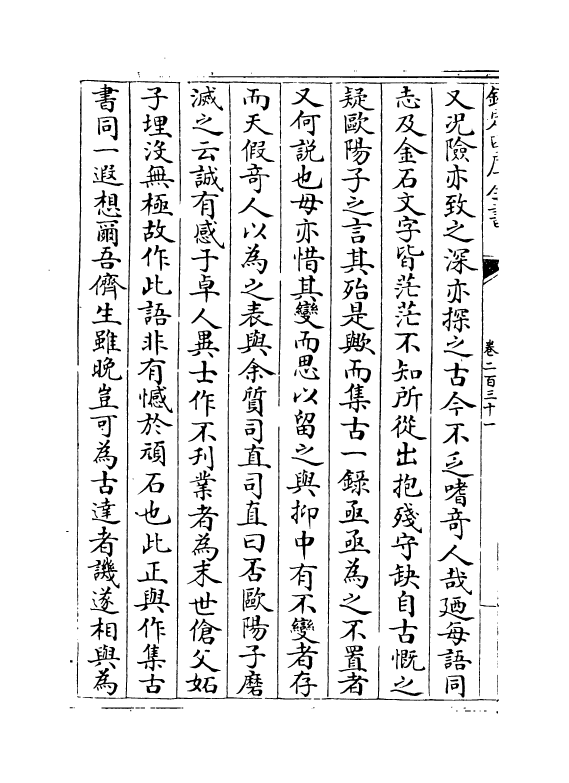 欽定四庫全書
卷二百三十一
又況險亦致之深亦探之古今不乏嗜奇人哉廼每語同
志及金石文字皆茫茫不知所從出抱殘守缺自古慨之
疑歐陽子之言其殆是歟而集古一錄亟亟為之不置者
又何説也毋亦惜其變而思以留之與抑中有不變者存
而天假奇人以為之表與余質司直司直曰否歐陽子磨
滅之云誠有感于卓人異士作不刋業者為末世傖父妬
子埋没無極故作此語非有憾於頑石也此正與作集古
書同一遐想爾吾儕生雖晩豈可為古達者譏遂相與為